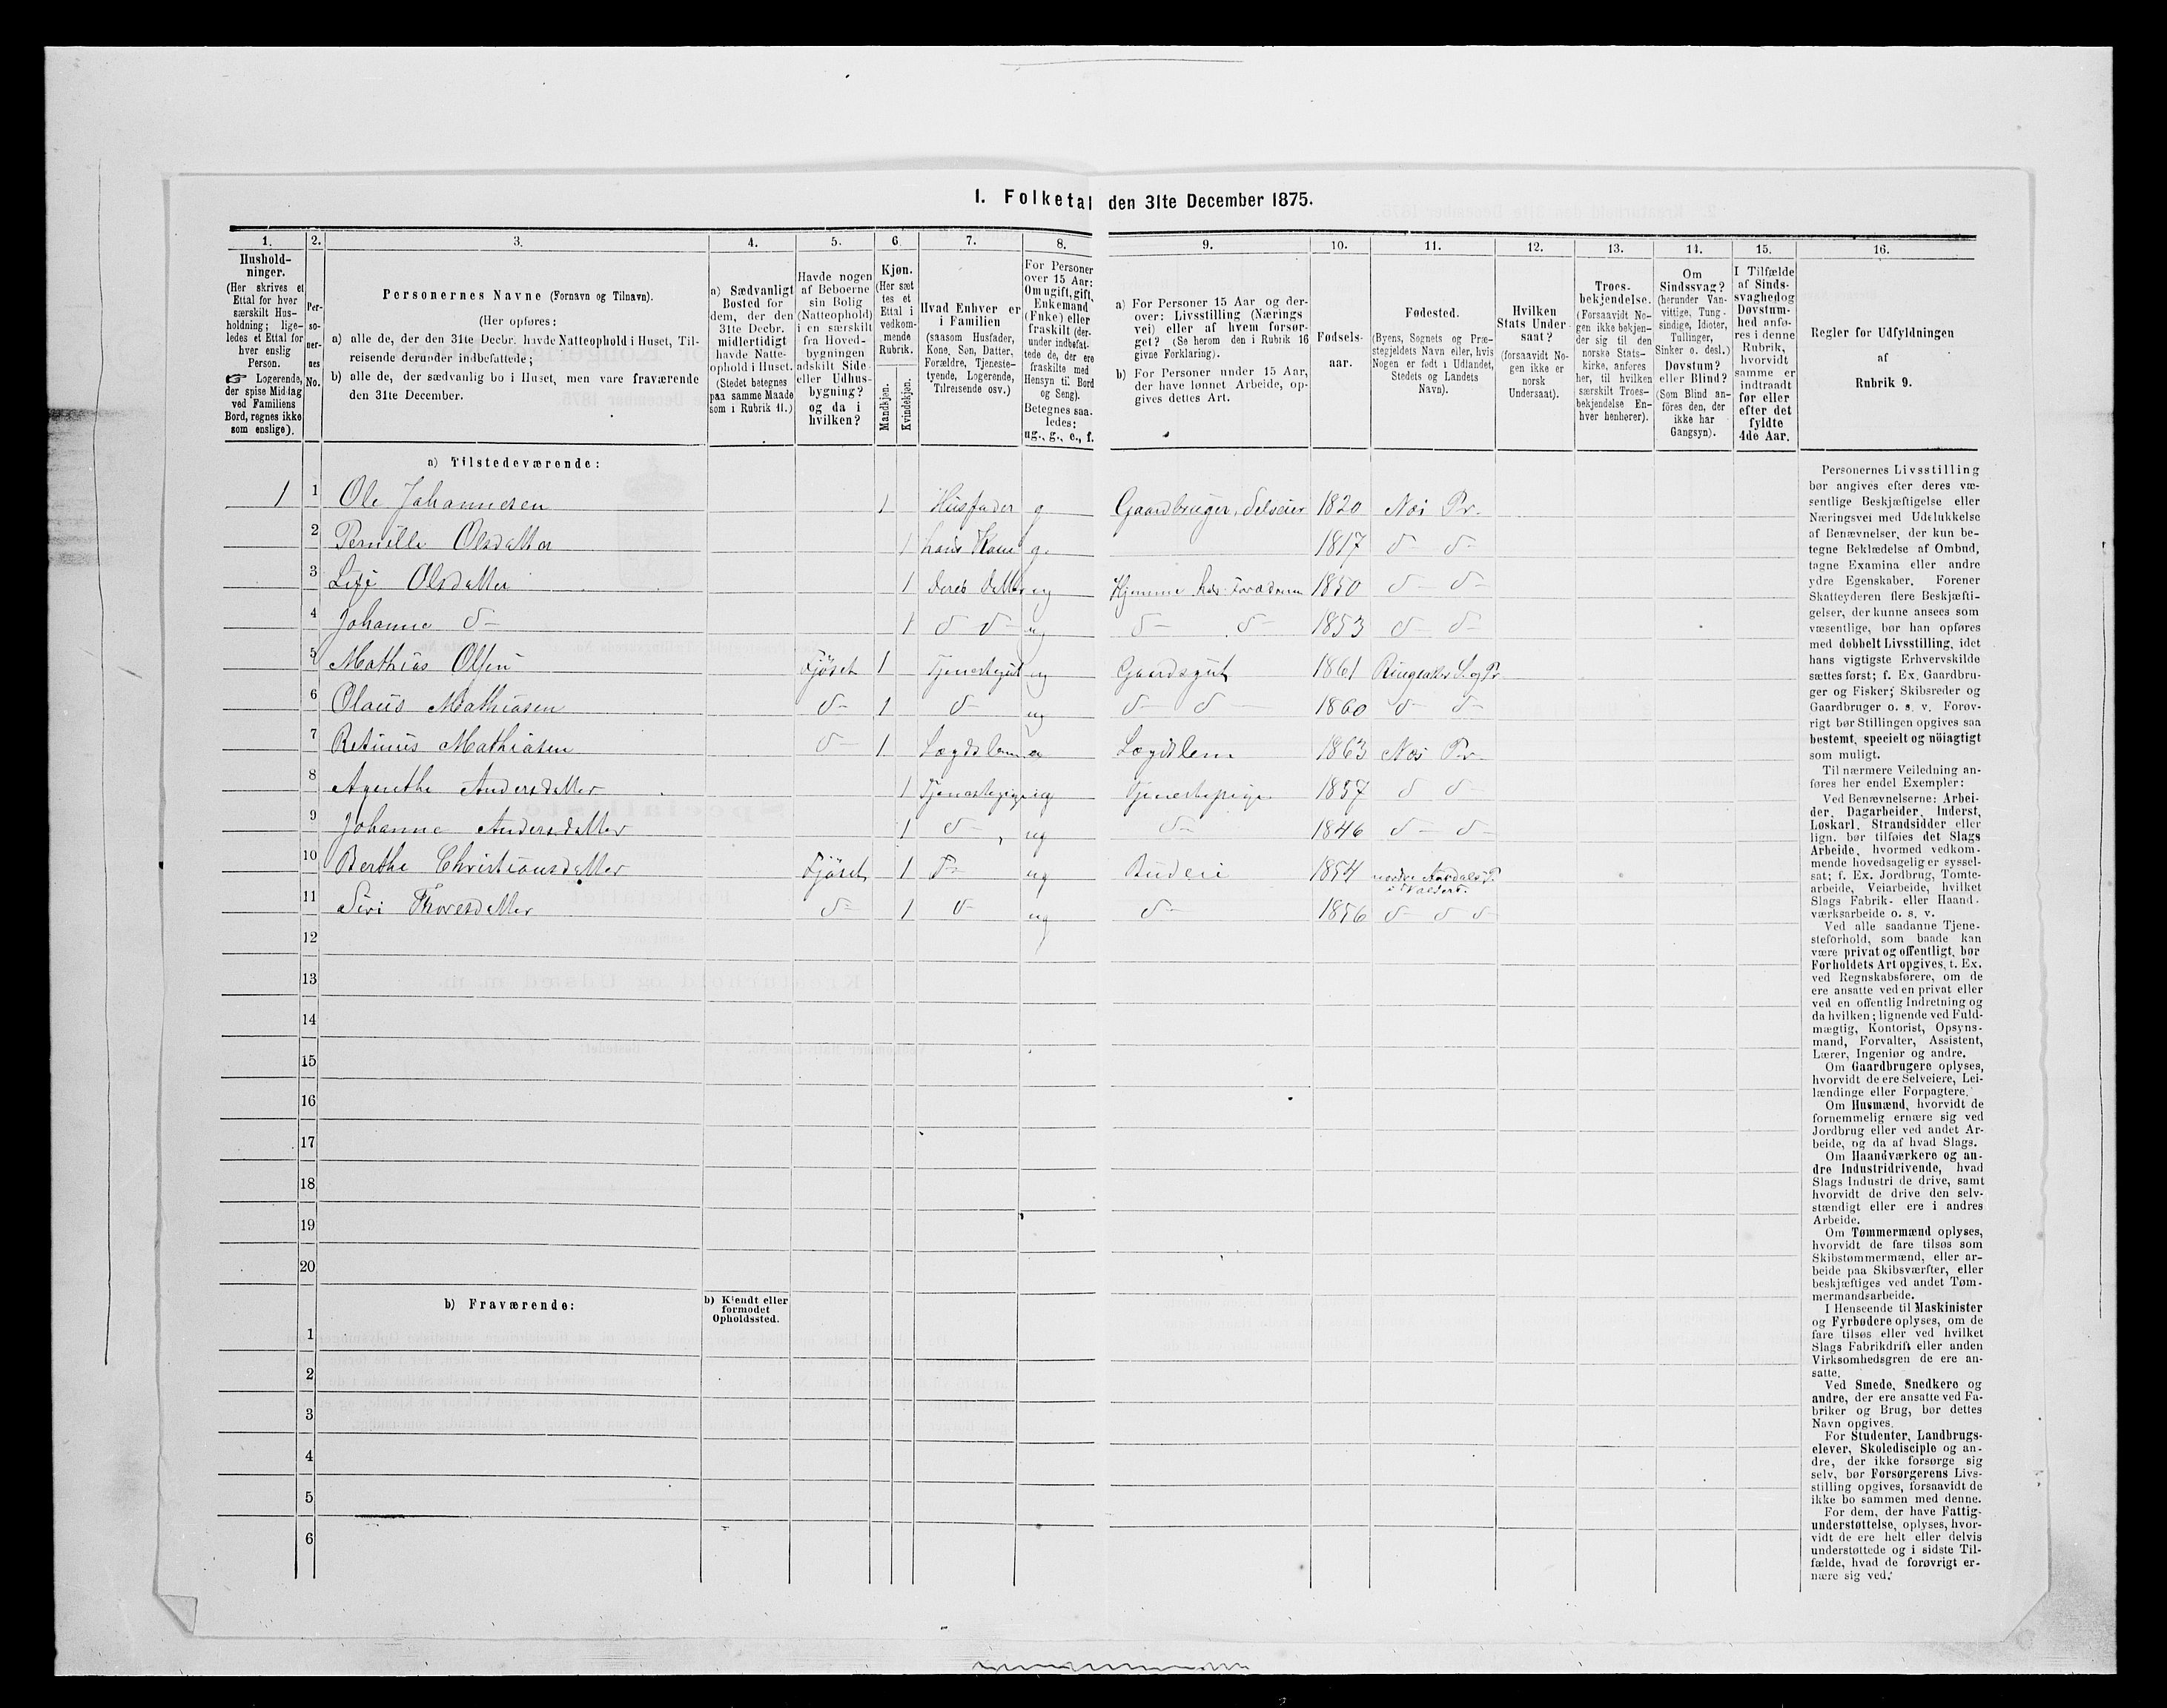 1. Folketal den 31te December 1875.
1.
2.
3.
4.
5.
6.
7.
8.
9.
10.
11.
12.
13.
14.
15.
16.
Hushold-
ninger.
(Her skrives et
Ettal for hver
særskilt Hus-
holdning; lige-
ledes et Ettal for
hver enslig
Person.
☞ Logerende,
der spise Middag
ved Familiens
Bord, regnes ikke
som enslige).
Per-
so-
ner-
nes
No.
Personernes Navne (Fornavn og Tilnavn).
(Her opføres:
a) alle de, der den 31te Decbr. havde Natteophold i Huset, Til-
reisende derunder indbefattede;
b) alle de, der sædvanlig bo i Huset, men vare fraværende
den 31te December.
a) Sædvanligt
Bosted for
dem, der den
31te Decbr.
midlertidigt
havde Natte-
ophold i Huset.
(Stedet betegnes
paa samme Maade
som i Rubrik 11.)
Havde nogen
af Beboerne
sin Bolig
(Natteophold)
i en særskilt
fra Hoved-
bygningen
adskilt Side-
eller Udhus-
bygning?
og da i
hvilken?
Kjøn.
(Her sæt
tes et
Ettal i
vedkom-
mende
Rubrik.
Mandkjøn.
Kvindekjøn.
Hvad Enhver er
i Familien
(saasom Husfader,
Kone, Søn, Datter,
Forældre, Tjeneste-
tyende, Logerende,
Tilreisende osv.)
For Personer
over 15 Aar:
Om ugift, gift,
Enkemand
(Enke) eller
fraskilt (der-
under indbefat-
tede de, der ere
fraskilte med
Hensyn til Bord
og Seng).
Betegnes saa-
ledes:
ug., g., e., f.
a) For Personer 15 Aar og der-
over: Livsstilling (Nærings
vei) eller af hvem forsør-
get? (Se herom den i Rubrik 16
givne Forklaring).
b) For Personer under 15 Aar,
der have lønnet Arbeide, op-
gives dettes Art.
Fødsels-
aar.
Fødested.
(Byens, Sognets og Præ-
stegjeldets Navn eller, hvis
Nogen er født i Udlandet,
Stedets og Landets
Navn).
Hvilken
Stats Under-
saat?
(forsaavidt No-
gen ikke er
norsk
Undersaat).
Troes-
bekjendelse.
(Forsaavidt No-
gen ikke bekjen-
der sig til den
norske Stats-
kirke, anføres
her, til hvilken
særskilt Troes-
bekjendelse En-
hver henhører).
Om
Sindssvag?
(herunder Van-
vittige, Tung-
sindige, Idioter,
Tullinger,
Sinker o. desl.)
Døvstum?
eller Blind?
(Som Blind an-
føres den, der
ikke har
Gangsyn).
I Tilfælde
af Sinds-
svaghed og
Døvstum-
hed anfø-
res i denne
Rubrik,
hvorvidt
samme er
indtraadt
før eller
efter det
fyldte
4de Aar.
Regler for Udfyldningen
af
Rubrik 9.
a) Tilstedeværende:
1 1 Ole Johannesen 1 Huusfader g Gaardbruger, Selveier 1820 Næs Pr.
2 Pernille Olsdatter 1 hans Kone g. 1817 d- d-
3 Olsdatter 1 deres datter ug Hjemme hos Forældrene 1850 d- d-
4 Johanne d- 1 d d- ug d- d- 1853 d- d-
5 Mathias Olsen Fjöset 1 Tjenestegut ug Gaardsgut 1861 Ringsaker S. og Pr
6 Olaus Mathiasen d- 1 d- ug d- d- 1860 d- d-
7 Mathiasen d- 1 Lægdslem Lægdslem 1863 Næs Pr.
8 Agenthe Andersdatter 1 Tjenestepige ug Tjenestepige 1857 d d-
9 Johanne Andersdatter 1 d- ug d- 1846 d- d-
10 Berthe Christiansdatter Fjöset 1 ug Budeie 1854 nordre Aurdals P.
i Valders.
11 Siri Thoresdatter d- 1 d- ug d- 1856 d- d d-
12
13
14
15
16
17
18
19
20
b) Fraværende:
b) Kiendt eller
formodet
Opholdssted.
1
2
3
4
5
6
Personernes Livsstilling
bør angives efter deres væ-
sentlige Beskjæftigelse eller
Næringsvei med Udelukkelse
af Benævnelser, der kun be-
tegne Beklædelse af Ombud,
tagne Examina eller andre
ydre Egenskaber. Forener
Skatteyderen flere Beskjæfti-
gelser, der kunne ansees som
væsentlige, bør han opføres
med dobbelt Livsstilling, idet
hans vigtigste Erhvervskilde
sættes først; f. Ex. Gaardbru-
ger og Fisker; Skibsreder og
Gaardbruger o. s. v. Forøv-
rigt bør Stillingen opgives saa
bestemt, specielt og nöiagtigt
som muligt.
Til nærmere Veiledning an-
føres her endel Exempler:
Ved Benævnelserne: Arbei-
der, Dagarbeider, Inderst,
Løskarl, Strandsidder eller
lign. bør tilføies det Slags
Arbeide, hvormed vedkom-
mende hovedsagelig er syssel-
sat; f. Ex. Jordbrug, Tomte-
arbeide, Veiarbeide, hvilket
Slags Fabrik- eller Haand-
værksarbeide o. s. v.
Ved alle saadanne Tjene-
steforhold, som baade kan
være privat og offentligt, bør
Forholdets Art opgives, t. Ex.
ved Regnskabsførere, om de
ere ansatte ved en privat eller
ved en offentlig Indretning og
da hvilken; lignende ved Fuld-
mægtig, Kontorist, Opsyns-
mand, Forvalter, Assistent,
Lærer, Ingeniør og andre.
Om Gaardbrugere oplyses,
hvorvidt de ere Selveiere, Lei-
lændinge eller Forpagtere.
Om Husmænd, hvorvidt de
fornemmelig ernære sig ved
Jordbrug eller ved andet Ar-
beide, og da af hvad Slags.
Om Haandværkere og an-
dre Industridrivende, hvad
Slags Industri de drive, samt
hvorvidt de drive den selv-
stændigt eller ere i andres
Arbeide.
Om Tømmermænd oplyses,
hvorvidt de fare tilsøs som
Skibstømmermænd, eller ar-
beide paa Skibsværfter, eller
beskjæftiges ved andet Tøm-
mermandsarbeide.
I Henseende til Maskinister
og Fyrbødere oplyses, om de
fare tilsøs eller ved hvilket
Slags Fabrikdrift eller anden
Virksomhedsgren de ere an-
satte.
Ved Smede, Snedkere og
andre, der ere ansatte ved Fa-
briker og Brug, bør dettes
Navn opgives.
For Studenter, Landbrugs-
elever, Skoledisciple og an-
dre, der ikke forsørge sig
selv, bør Forsørgerens Livs-
stilling opgives, forsaavidt de
ikke bo sammen med denne.
For dem, der have Fattig-
understøttelse, oplyses, hvor-
vidt de ere helt eller delvis
understøttede og i sidste Til-
fælde, hvad de forøvrigt er-
nære sig ved.